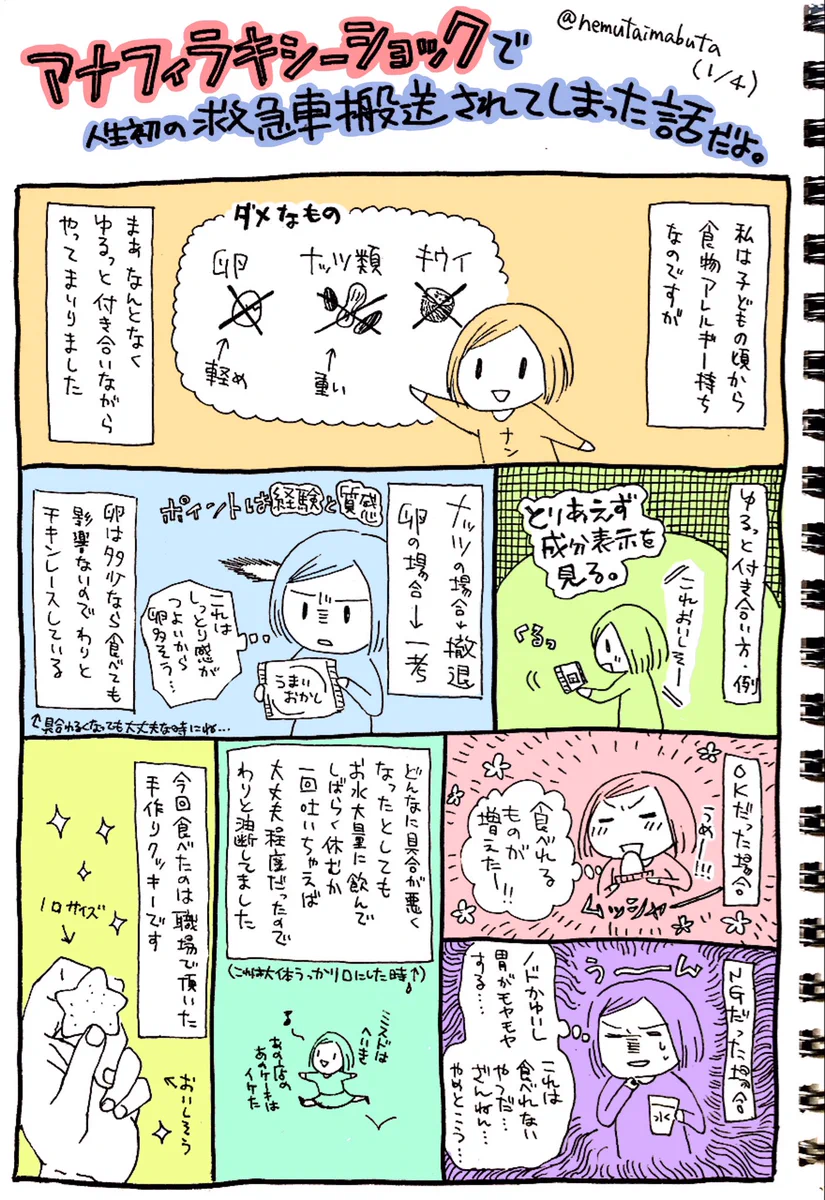 @nemutaimabuta
(1/4)
アナフィラキシーショックで
人生初の救急車搬送されてしまった話だよ。
私は子どもの頃から
食物アレルギー持ち
なのですが
ダメなもの
卵
ナッツ類
キウイ
軽め
重い
ナン
まぁなんとなく
ゆるっと付き合いながら
やってまいりました
ゆるっと付き合い方・例
とりあえず
成分表示を
見る。
これおいしそー
くるっ
ナッツの場合→撤退
卵の場合→一考
ポイントは経験と質感
これは
しっとり感が
つよいから
卵多そう…
うまい
おかし
卵は多少なら食べても
影響ないのでわりと
チキンレースしている
↑具合わるくなっても大丈夫な時にね…
OKだった場合
うめー!!!
食べれる
ものが
増えたー!!
ムッシャー
NGだった場合
うーーん
ノドかゆいし
胃がモヤモヤ
する…
これは
食べれない
やつだ…
ざんねん…
やめとこう…
水
どんなに具合が悪く
なったとしても
お水大量に飲んで
しばらく休むか
一回吐いちゃえば
大丈夫程度だったので
わりと油断してました
(これは大体うっかり口にした時↑)
ここんとこは
へいき
あの店の
あのケーキは
イケた
今回食べたのは職場で頂いた
手作りクッキーです
1口サイズ
おいしそう